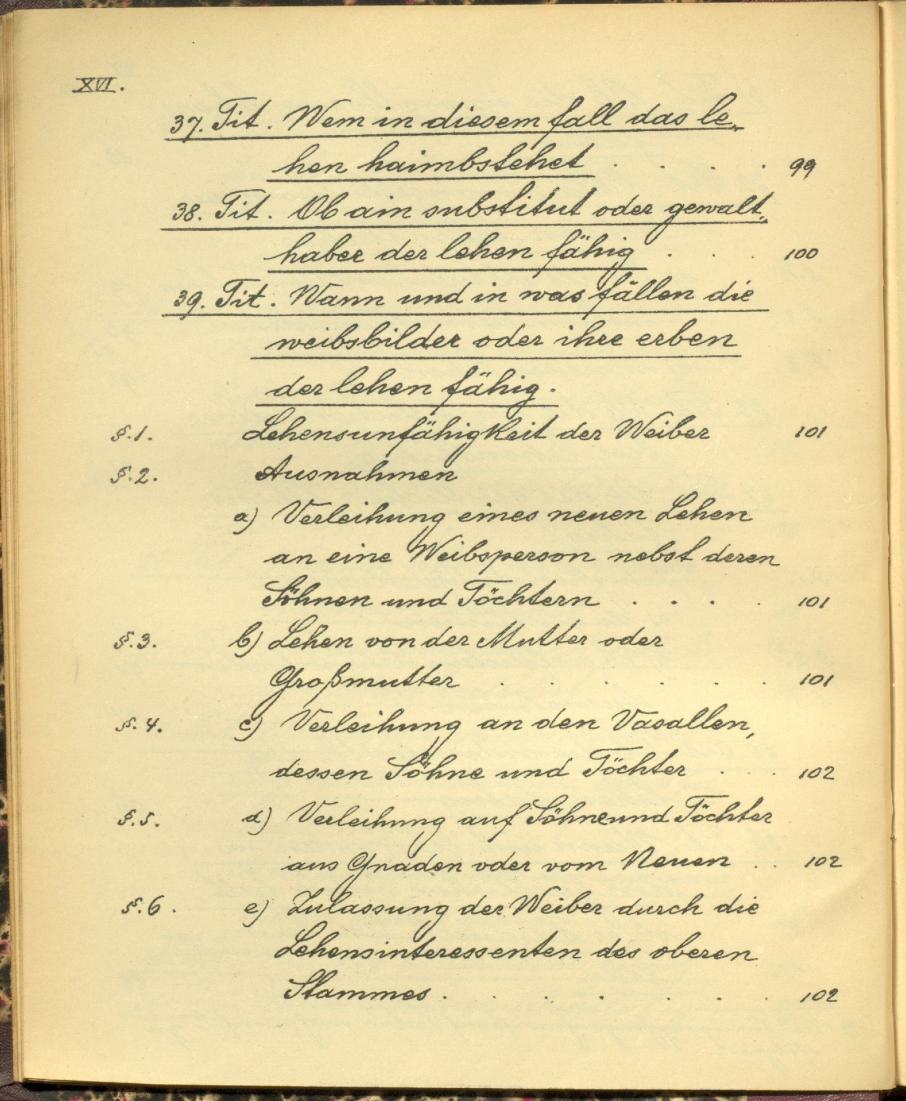 XVI.
37. Tit. Wem in diesem fall das le„
hen haimbstehet . . . . 99
38. Tit. Ob ain substitut oder gewalt„
haber der lehen fähig . . . 100
39. Tit. Wann und in was fällen die
weibsbilder oder ihre erben
der lehen fähig.
§.1. Lehensunfähigkeit der Weiber 101
§.2. Ausnahmen
a) Verleihung eines neuen Lehen
an eine Weibsperson nebst deren
Söhnen und Töchtern . . . . 101
§.3. b) Lehen von der Mutter oder
Großmutter . . . . . . 101
§.4. c) Verleihung an den Vasallen,
dessen Söhne und Töchter . . . 102
§.5. d) Verleihung auf Söhne und Töchter
aus Gnaden oder vom Neuen . . 102
§.6. e) Zulassung der Weiber durch die
Lehensinteressenten des oberen
Stammes . . . . . . . 102